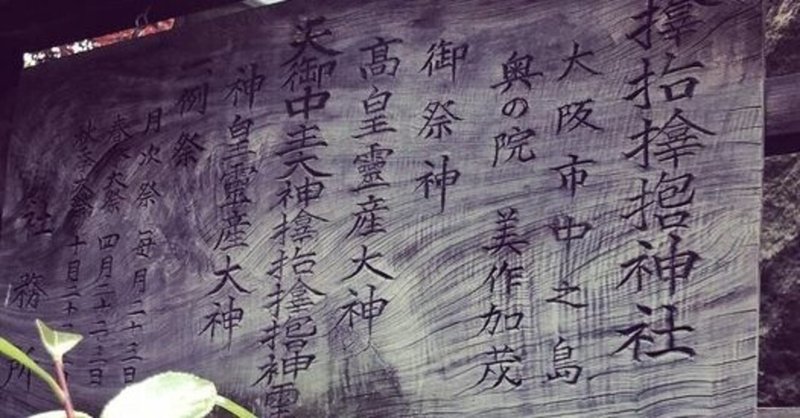 𪮷抬𪮷𪮇神社
大阪市中之島
奥の院 美作加茂
御祭神
髙皇靈産大神
天御中主大神𪮷抬𪮷𪮇神靈
神皇靈産大神
一例祭
月次祭 毎月二十三日
春季大祭 四月二十二・三日
秋季大祭 十月二十二
社務所